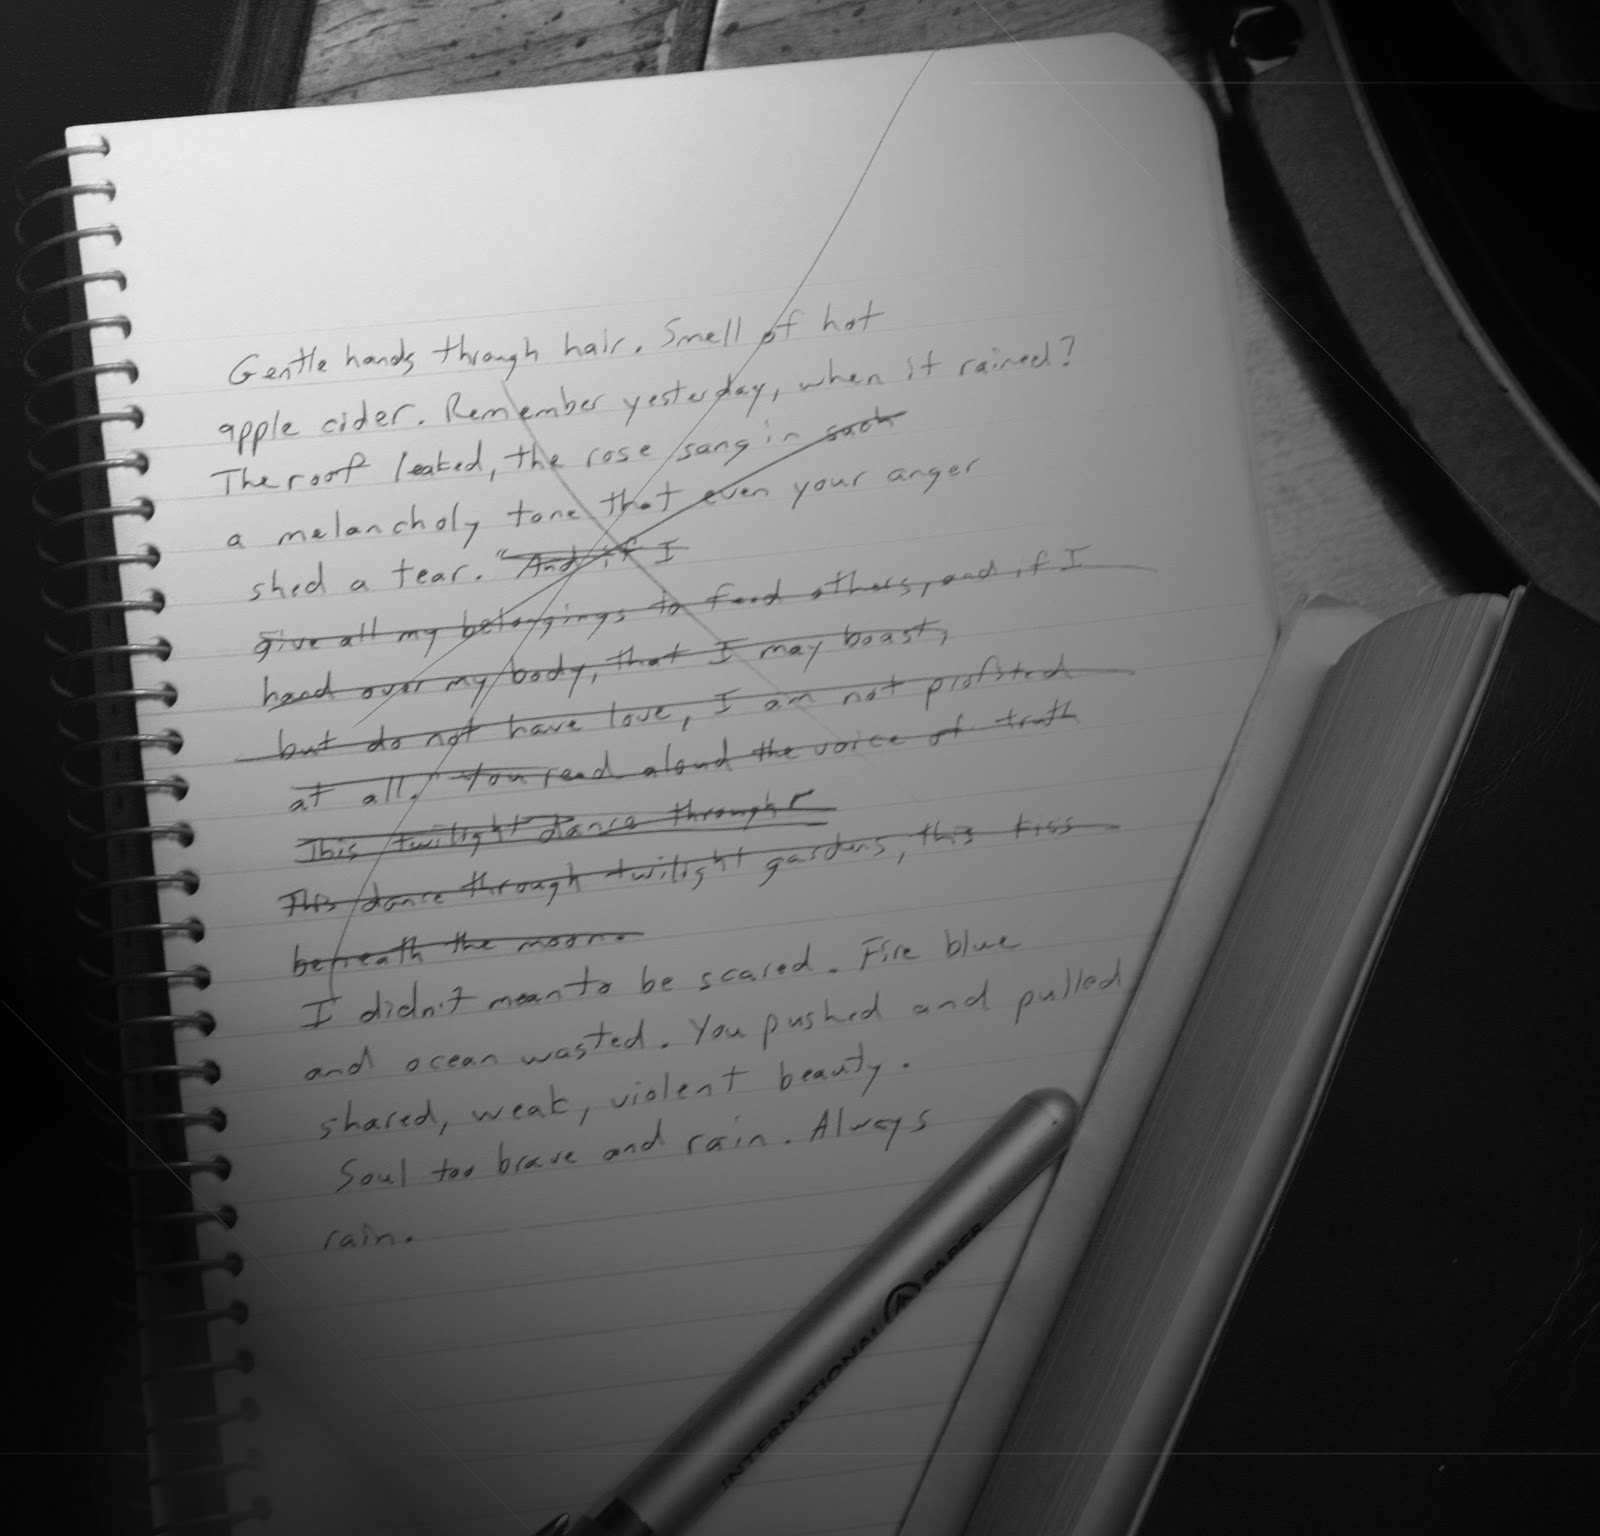 Gentle hands through hair. Smell of hot
apple cider. Remember yesterday, when it rained?
The roof leaked, the rose sang in such
a melancholy tone that even your anger
shed a tear. "And if I
give all my belongings to feed others, and if I
hand over my body, that I may boast,
but do not have love, I am not profited
at all." You read aloud the voice of truth
This twilight dance through
This dance through twilight gardens, this kiss
beneath the moon.
I didn't mean to be scared. Fire blue
and ocean wasted. You pushed and pulled
shared, weak, violent beauty.
Soul too brave and rain. Always
rain.
INTERNATIONAL PAPER